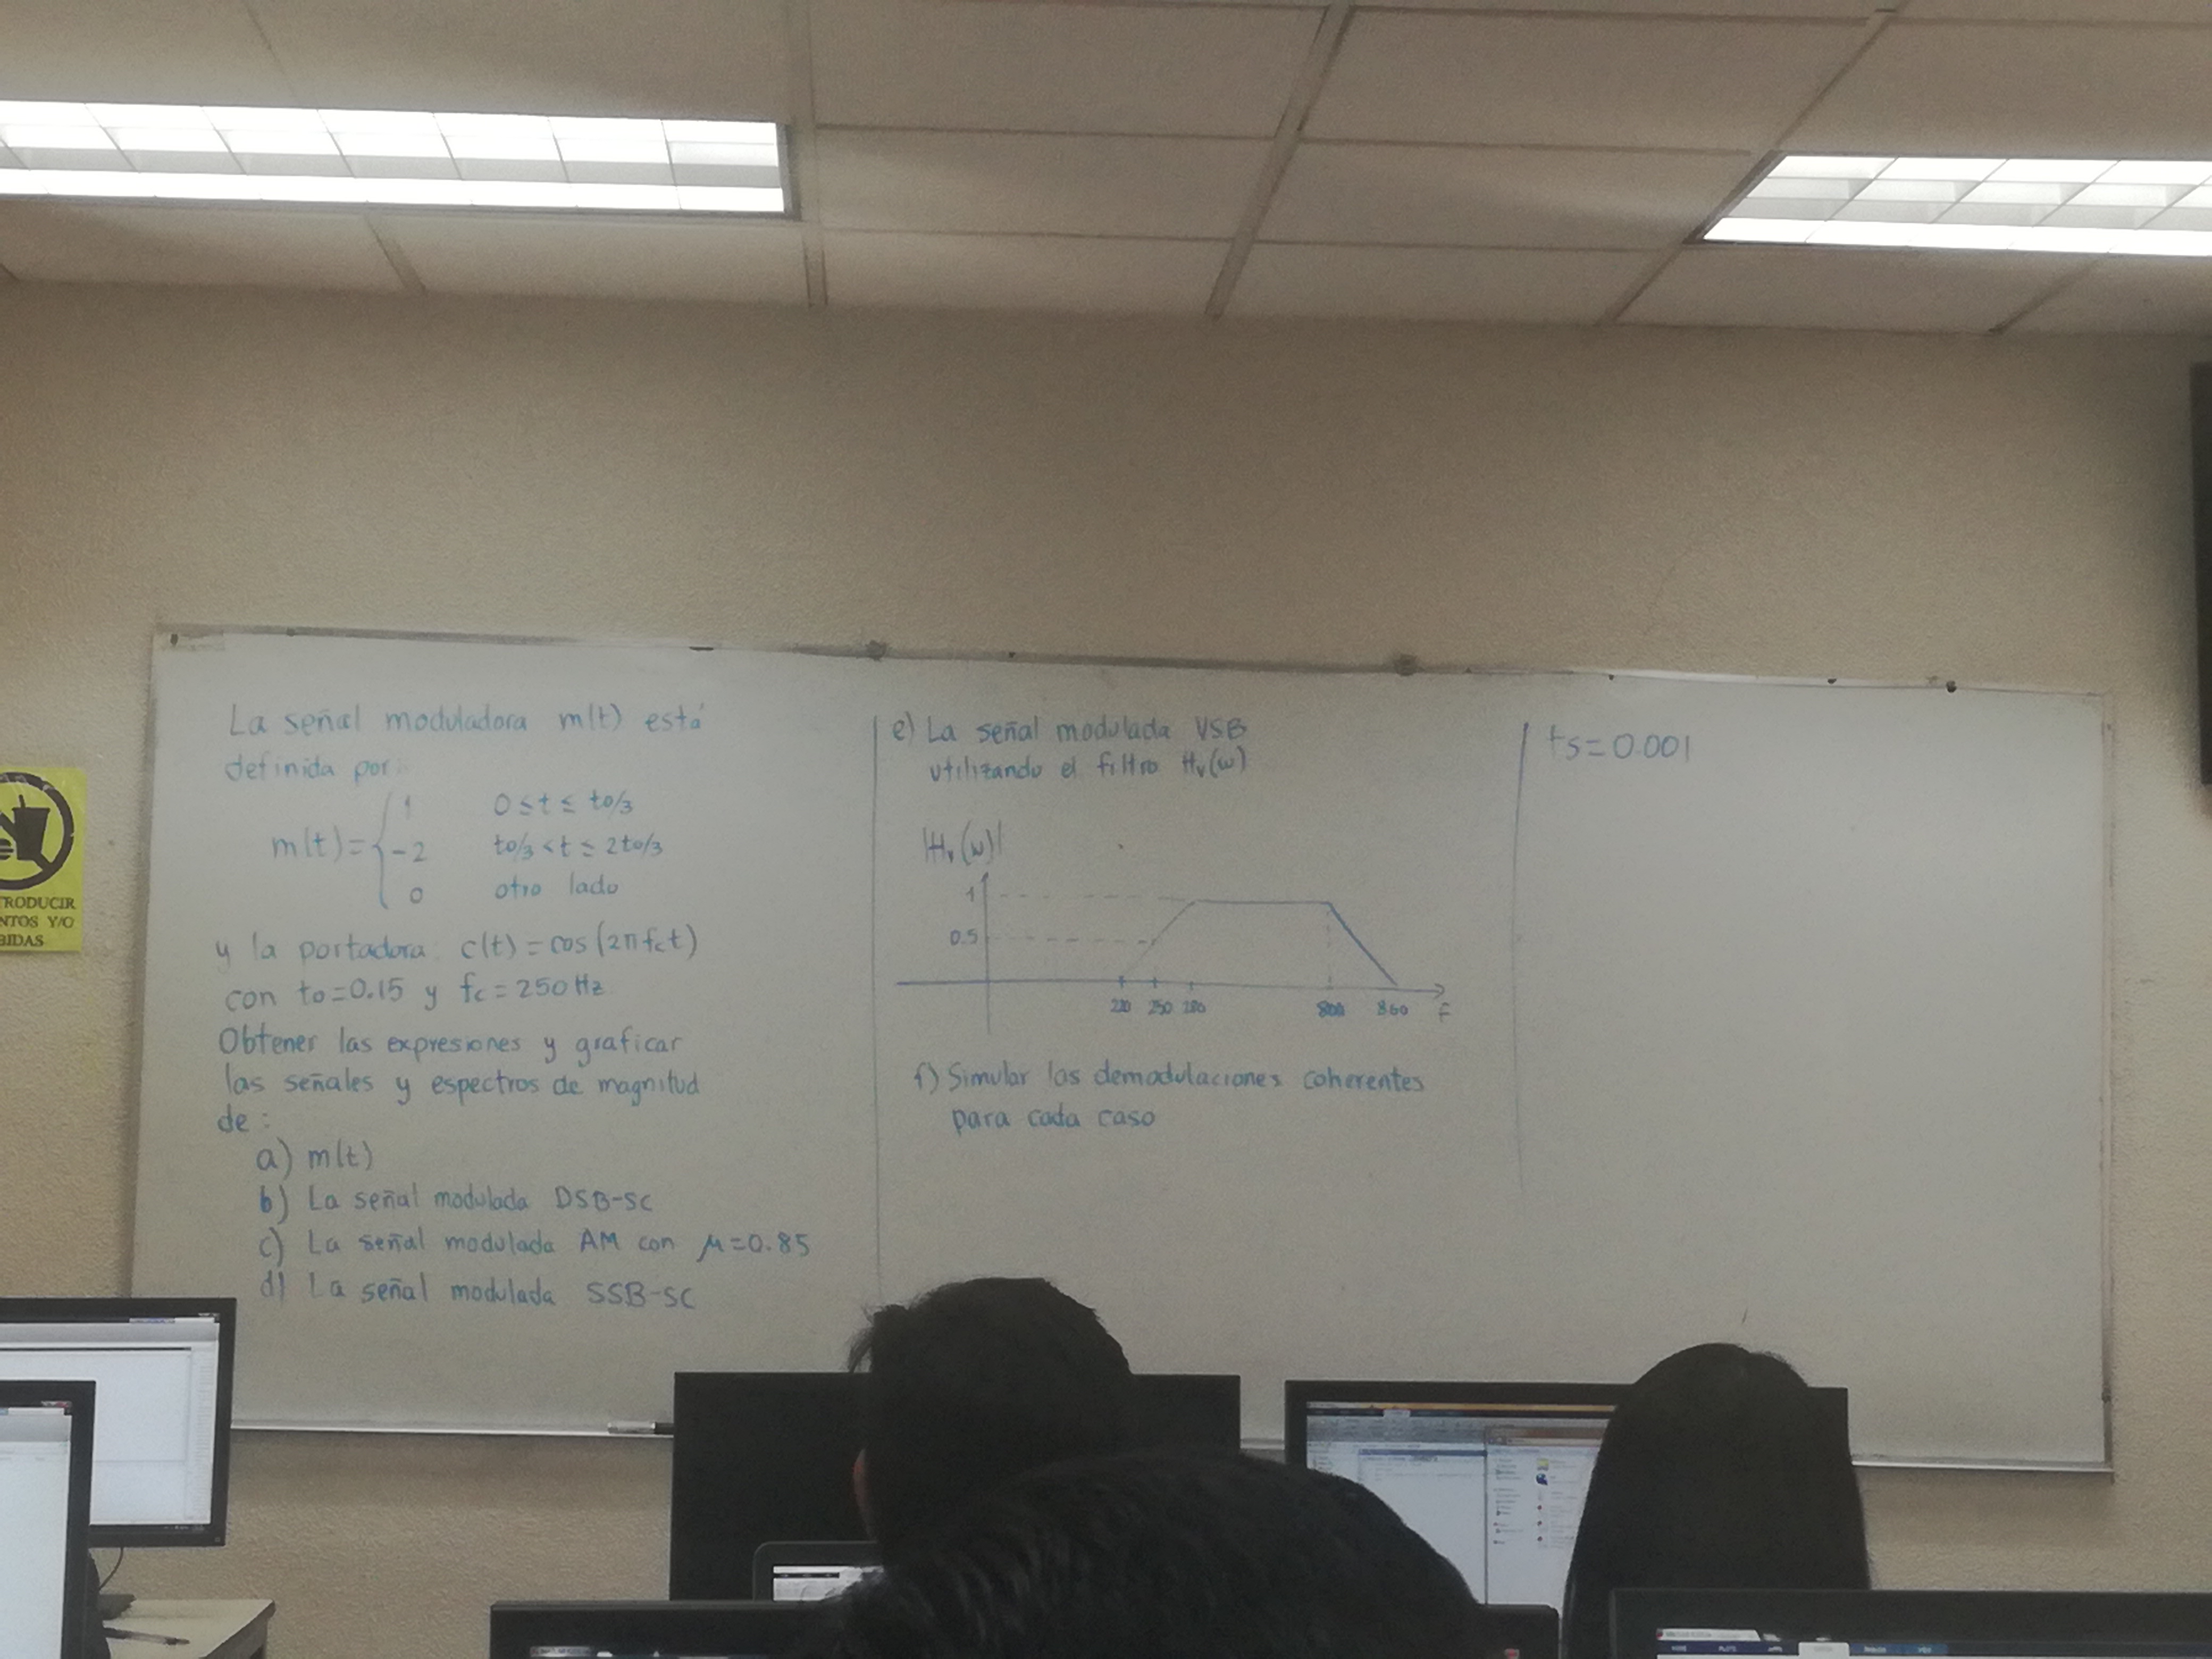 La señal moduladora m(t) está
definida por:
m(t) = { 1 0 ≤ t ≤ to/3
-2 to/3 < t ≤ 2to/3
0 otro lado
y la portadora c(t) = cos(2πfct)
con to=0.15 y fc = 250 Hz
Obtener las expresiones y graficar
las señales y espectros de magnitud
de:
a) m(t)
b) La señal modulada DSB-SC
c) La señal modulada AM con μ=0.85
d) La señal modulada SSB-SC
e) La señal modulada VSB
utilizando el filtro Hv(w)
|Hv(w)|
1
0.5
220 250 280 800 860 F
f) Simular las demodulaciones coherentes
para cada caso
ts=0.001
TRODUCIR
NTOS Y/O
BIDAS